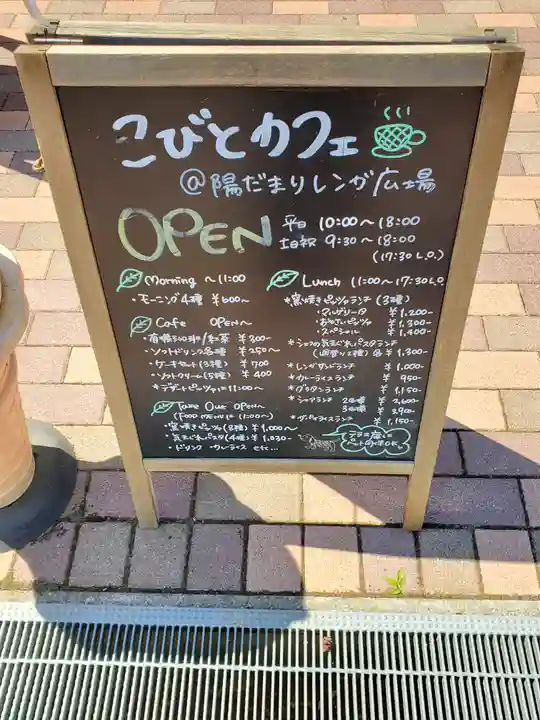 こびとカフェ
@陽だまりレンガ広場
OPEN
平日 10:00~18:00
土日祝 9:30~18:00
(17:30 L.O.)
Morning ~11:00
・モーニング4種 ¥600~
Cafe OPEN~
有機珈琲/紅茶 ¥300~
・ソフトドリンク各種 ¥250~
・ケーキセット(3種) ¥700
・ソフトクリーム(5種) ¥400
*デザートピッツァは11:00~
Take Out OPEN~
(FOOD MENUは11:00~)
・窯焼きピッツァ(8種) ¥1,000~
・気まぐれパスタ(4種) ¥1,030~
・ドリンク カレーライス etc...
Lunch 11:00~17:30 L.O
*窯焼きピッツァランチ(3種)
・マルゲリータ ¥1,200-
・おやさいピッツァ ¥1,300-
・スペシャル ¥1,400-
*シェフの気まぐれパスタランチ
(週替り2種)各¥1,300-
*レンガサンドランチ ¥1,000
*カレーライスランチ ¥950-
*グラタンランチ ¥1,150-
*シェアランチ 2名様 ¥2,600-
3名様 ¥3,900-
ランチ ¥1,150-
テラス席は
ペット同伴OK